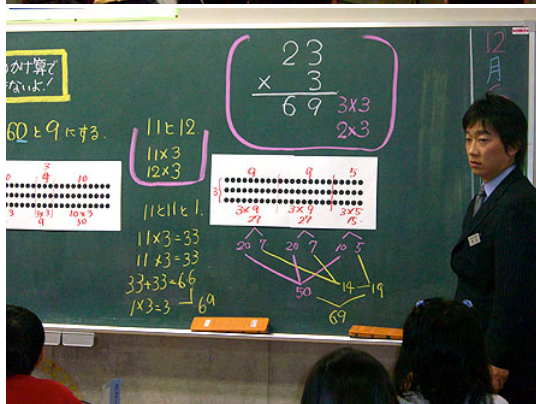 かけ算で
ないよ!
60と9にする.
3
4 10
3 3×3 10×3
9 30
11と12.
11×3
12×3
11と11と1.
11×3=33
11×3=33
33+33=66
1×3=3
69
23
× 3
69
3×3
2×3
9 9 5
3
3×9 3×9 3×5
27 27 15
20 7 20 7 10 5
50 14 19
69
12
月